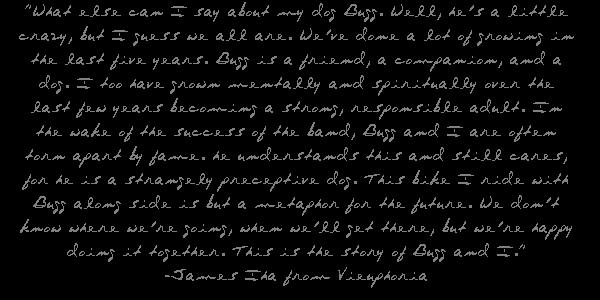 "What else can I say about my dog Bugg. Well, he's a little
crazy, but I guess we all are. We've done a lot of growing in
the last five years. Bugg is a friend, a companion, and a
dog. I too have grown mentally and spiritually over the
last few years becoming a strong, responsible adult. In
the wake of the success of the band, Bugg and I are often
torn apart by fame. he understands this and still cares,
for he is a strangely preceptive dog. This bike I ride with
Bugg along side is but a metaphor for the future. We don't
know where we're going, when we'll get there, but we're happy
doing it together. This is the story of Bugg and I."
-James Iha from Vieuphoria